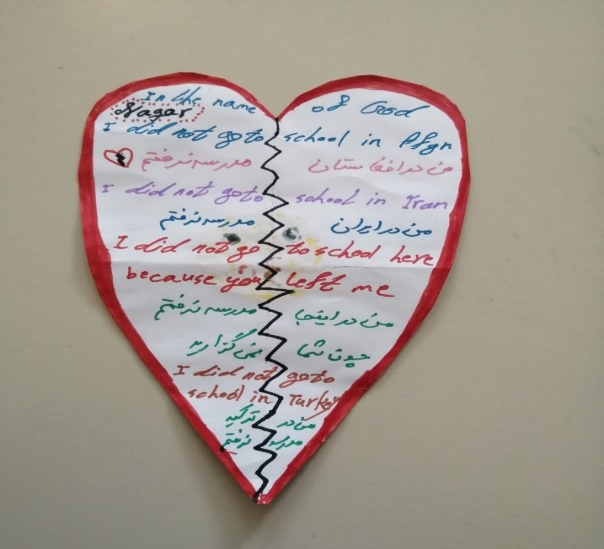 In the name of God
Nagar
I did not go to school in Afgn
من در افغانستان مدرسه نرفتم
I did not go to school in Iran
من در ایران مدرسه نرفتم
I did not go to school here
because you left me
من در اینجا مدرسه نرفتم
چون شما نمی گزارید
I did not go to
school in Turkey
من در ترکیه
مدرسه نرفتم